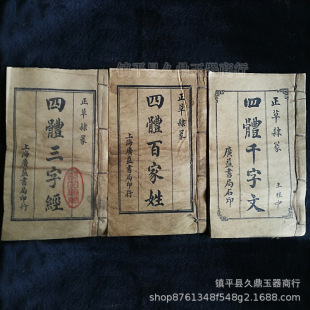 镇平县久鼎玉器商行
正草隸篆
四體三字經
上海廣益書局印行
正草隸篆
四體百家姓
上海廣益書局印行
正草隸篆
四體千字文
廣益書局石印
镇平县久鼎玉器商行
shop8761348f548g2.1688.com